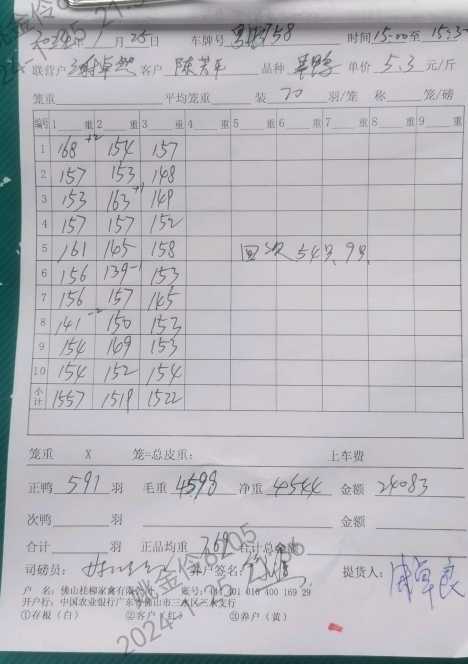 2024年 1月25日 车牌号 758 时间15:00至 15:35
联营户 客户 陈芳平 品种 单价 5.3 元/斤
笼重 平均笼重 装 20 羽/笼 称 笼/磅
编号 1 重 2 重 3 重 4 重 5 重 6 重 7 重 8 重 9 重
1 168 +2 154 157
2 157 153 148
3 153 163 +1 149
4 157 157 152
5 161 145 158 回次 54只, 9只,
6 156 139 -1 153
7 156 157 145
8 141 -2 150 153
9 154 149 153
10 154 152 154
小计 1557 1519 1522
笼重 X 笼=总皮重: 上车费
正鸭 591 羽 毛重 4598 净重 4544 金额 24083
次鸭 羽 金额
合计 羽 正品均重 7.69 合计总金额
司磅员: 养户签名: 提货人:
户 名: 佛山桂柳家禽有限公司 账号: 401 016 400 169 29
开户行: 中国农业银行广东佛山市三水区三水支行
①存根（白） ②客户（红） ③养户（黄）